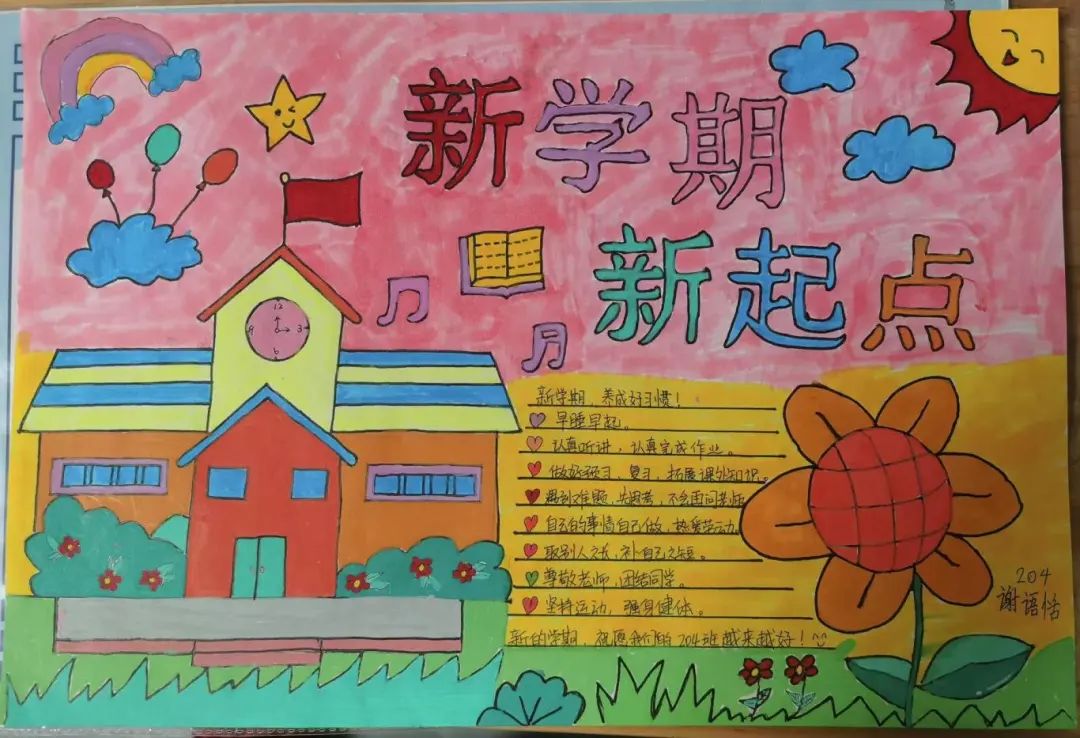 新学期
新起点
12
9 3
6
新学期，养成好习惯！
早睡早起。
认真听讲，认真完成作业。
做好预习、复习，拓展课外知识。
遇到难题，先思考，不会再问老师
自己的事情自己做，热爱劳动。
取别人之长，补自己之短。
尊敬老师，团结同学。
坚持运动，强身健体。
新的学期，祝愿我们的204班越来越好！
204
谢语恬